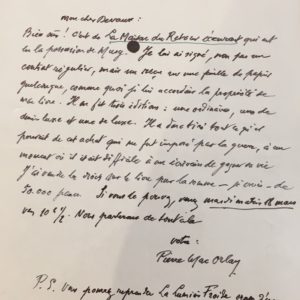 mon cher Devaux :
Bien sûr ! C'est de La Maison du Retour écœurant qui est
en la possession de Mucy. Je lui ai signé, non pas un
contrat régulier, mais un reçu sur une feuille de papier
quelconque, comme quoi je lui accordais la propriété de
ce livre. Il en fut trois éditions : une ordinaire, une de
demi luxe et une de luxe. Il a
pouvait de cet achat qui me fut imposé par la guerre, à un
moment où il était difficile à un écrivain de gagner sa vie
J'ai vendu le droit sur le livre par la somme — je crois — de
20.000 francs. Si vous le pouvez, venez mardi matin 18 mars
vers 10 h ½. Nous parlerons de tout cela
votre :
Pierre Mac Orlan
P.S. Vous pouvez reprendre La Lumière Froide